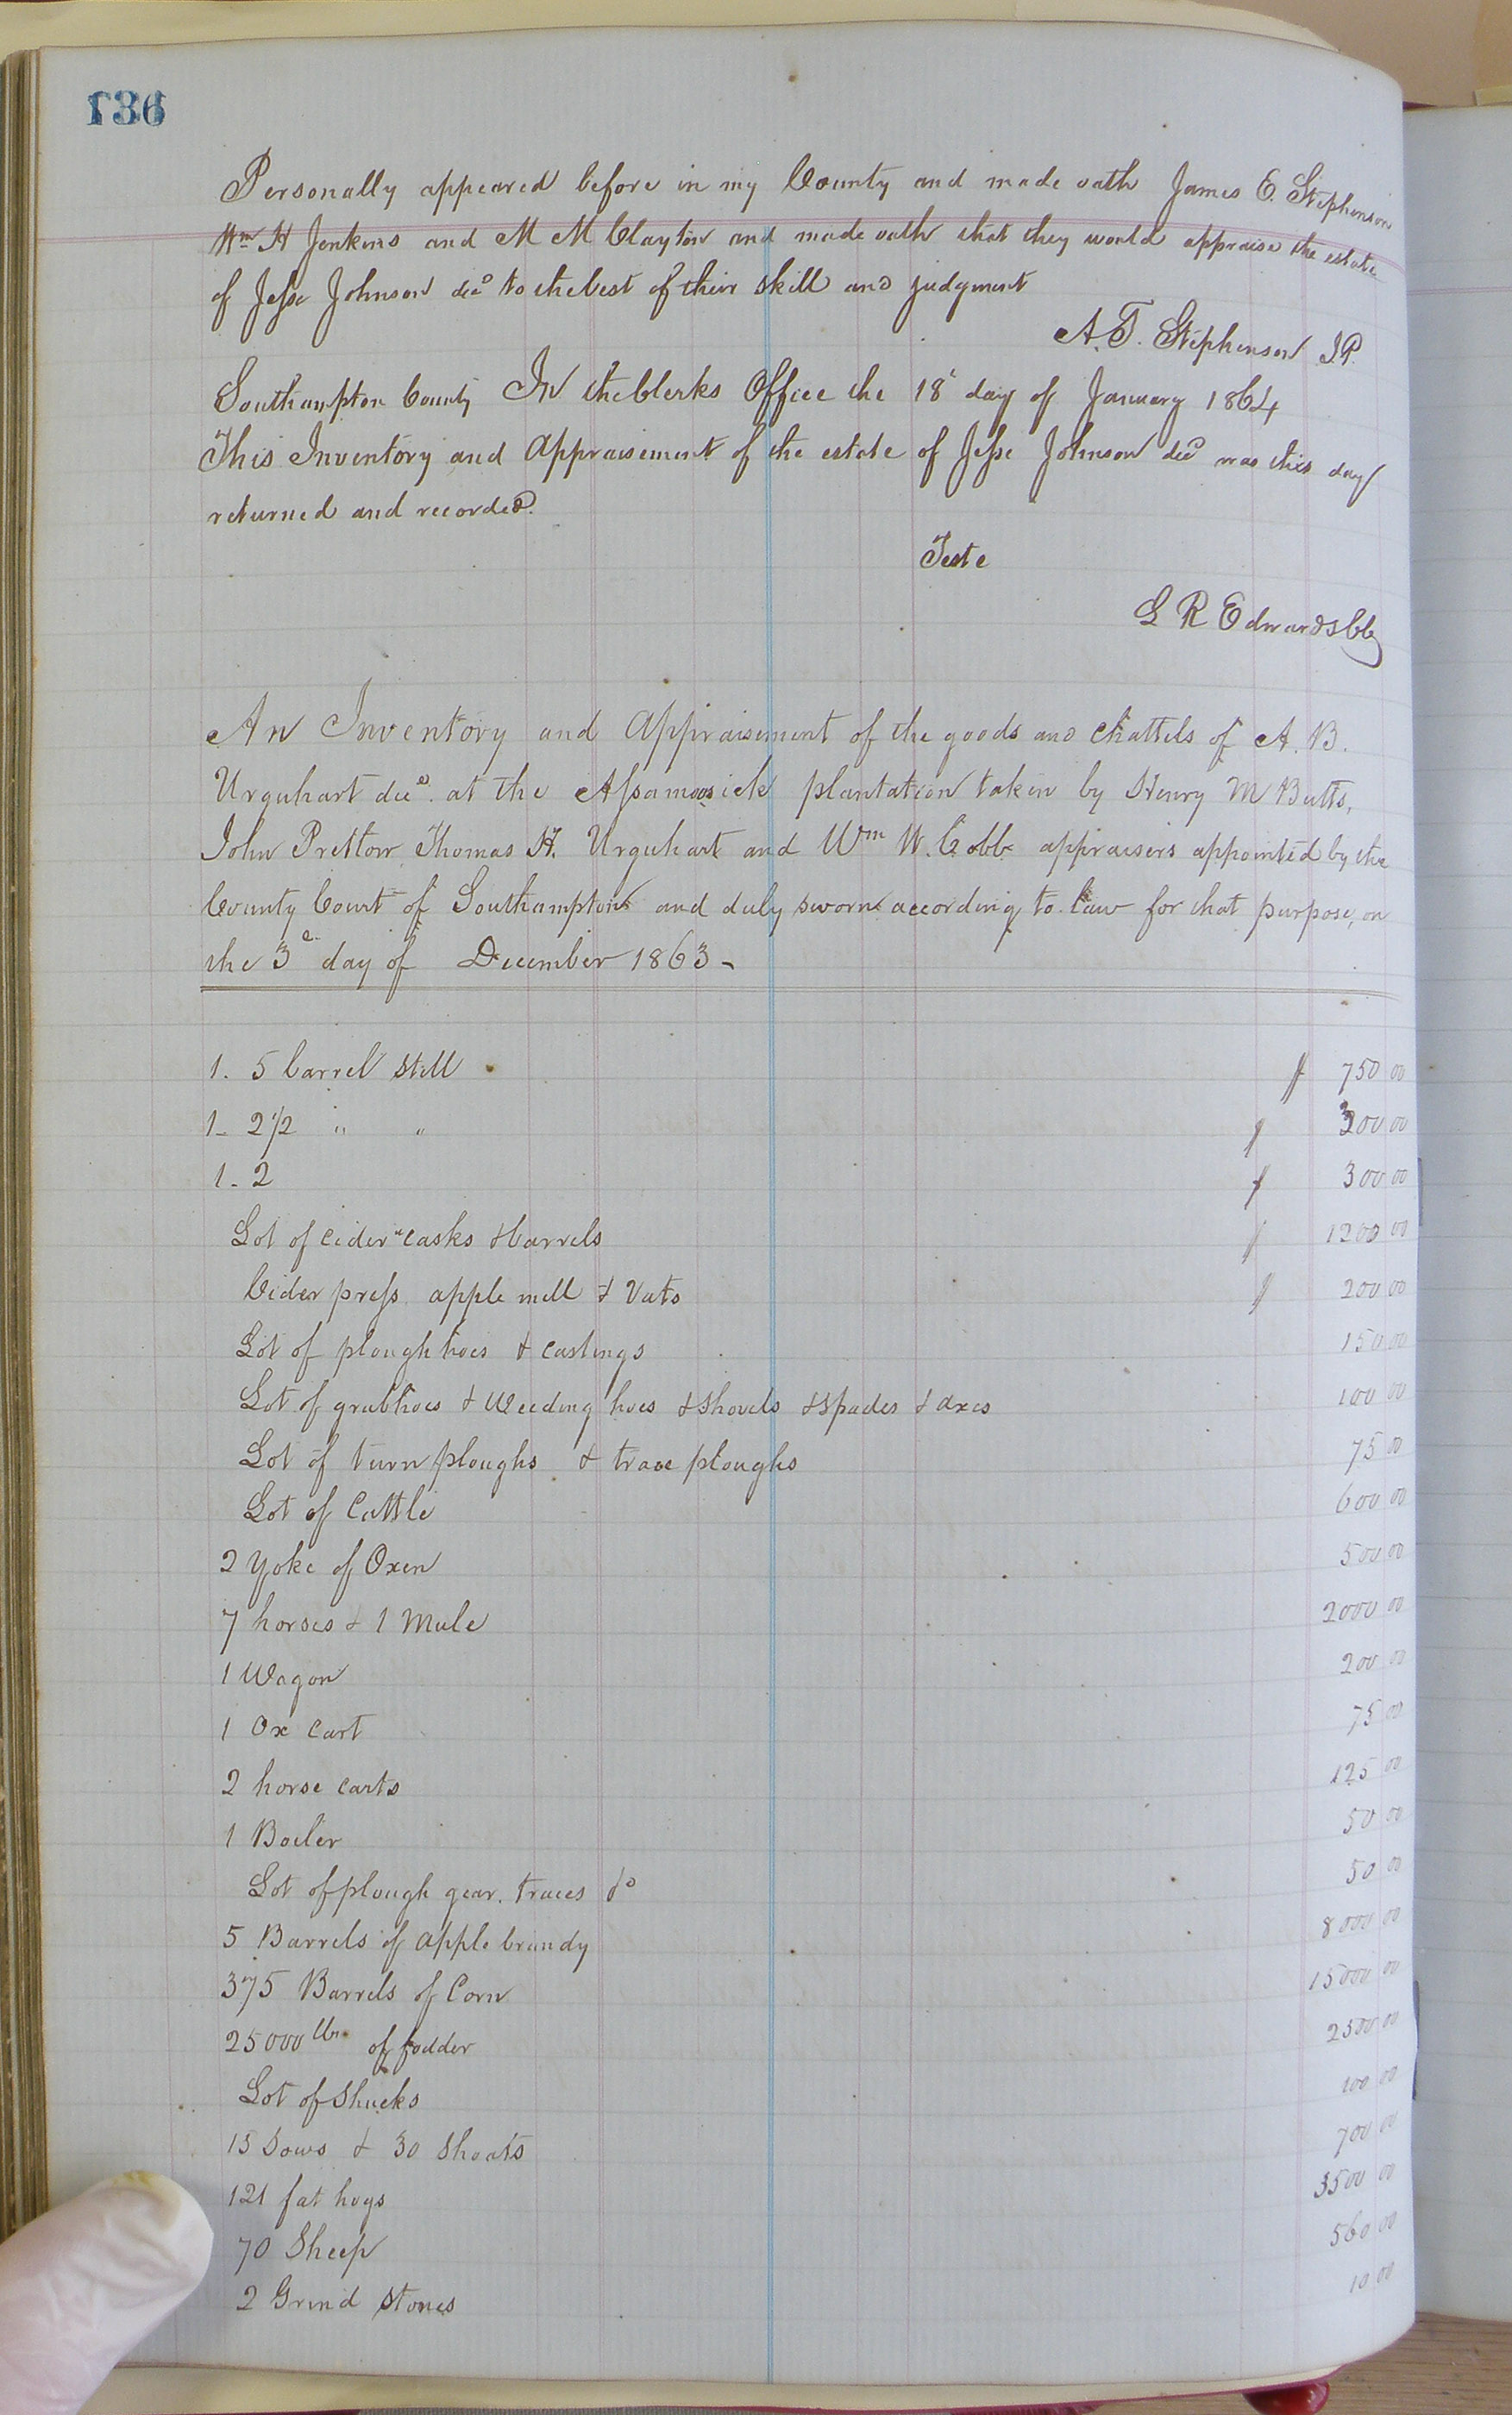 736
Personally appeared before in my County and made oath James E. Stephenson
Wm H Jenkins and M M Clayton and made oath that they would appraise the estate
of Jesse Johnson decd to the best of their skill and judgment
A. T. Stephenson J.P.
Southampton County In the Clerks Office the 18th day of January 1864
This Inventory and Appraisement of the estate of Jesse Johnson decd was this day
returned and recorded.
Teste
L R Edwards CC
An Inventory and Appraisement of the goods and chattels of A. B.
Urquhart decd. at the Assamoosick plantation taken by Henry M Butts,
John Pretlow, Thomas H. Urquhart and Wm W. Cobb appraisers appointed by the
County Court of Southampton and duly sworn according to law for that purpose, on
the 3d day of December 1863 -
1. 5 barrel Still $ 750 00
1 - 2 1/2 " " 300 00
1 - 2 300 00
Lot of cider casks & barrels 1200 00
Cider press apple mill & Vats 200 00
Lot of plough hoes & castings 150 00
Lot of grubhoes & Weeding hoes & Shovels & Spades & axes 100 00
Lot of turn ploughs & trace ploughs 75 00
Lot of Cattle 600 00
2 Yoke of Oxen 500 00
7 horses & 1 Mule 2000 00
1 Wagon 200 00
1 Ox Cart 75 00
2 horse carts 125 00
1 Boiler 50 00
Lot of plough gear, traces &c 50 00
5 Barrels of apple brandy 8000 00
375 Barrels of Corn 15000 00
25000 lbs of fodder 2500 00
Lot of Shucks 100 00
15 Sows & 30 Shoats 700 00
121 fat hogs 3500 00
70 Sheep 560 00
2 Grind Stones 10 00